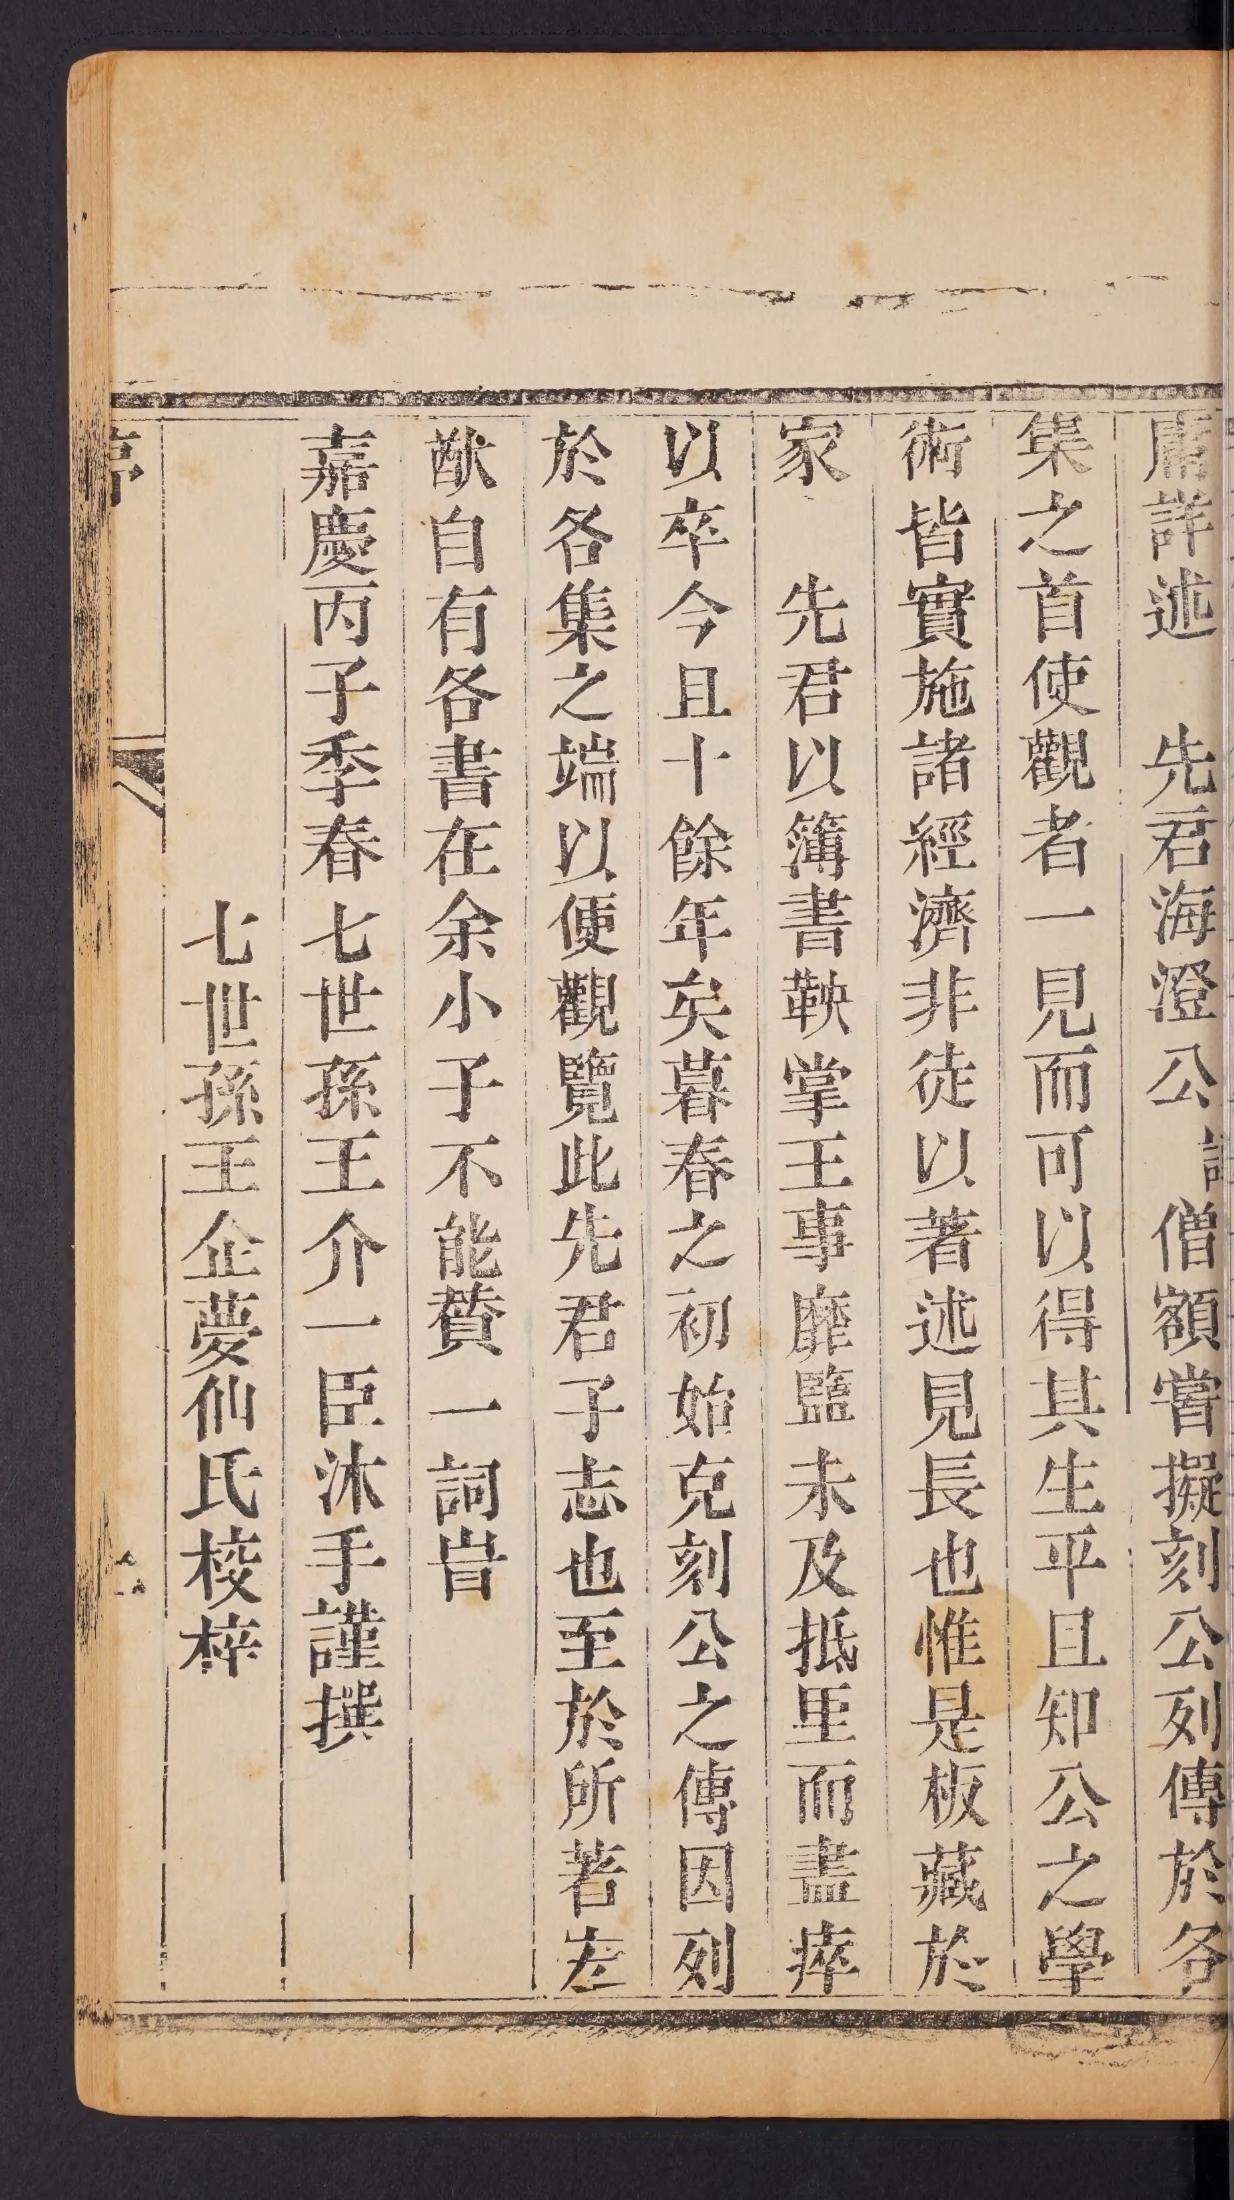 庸詳述　先君海澄公諱僧額嘗擬刻公列傳於各
集之首使觀者一見而可以得其生平且知公之學
術皆實施諸經濟非徒以著述見長也惟是板藏於
家　先君以簿書鞅掌王事靡盬未及抵里而盡瘁
以卒今且十餘年矣暮春之初始克刻公之傳因列
於各集之端以便觀覽此先君子志也至於所著宏
猷自有各書在余小子不能賛一詞旹
嘉慶丙子季春七世孫王介一臣沐手謹撰
七世孫王企夢仙氏校梓
序